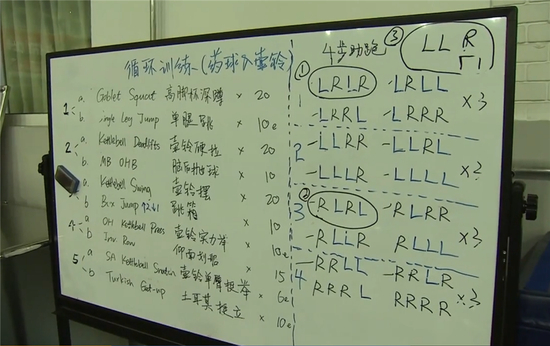 循环训练-(药球&壶铃)
1 a. Goblet Squat 高脚杯深蹲 × 20
b. Single Leg Jump 单腿跳 × 10e
2 a. Kettlebell Deadlifts 壶铃硬拉 × 20
b. MB OHB × 10
a. Kettlebell Swing 壶铃摆 × 20
b. Box Jump 跳箱 × 10
4 a. OH Kettlebell Press 壶铃实力举 × 10e
b. Inv Row 仰面划船 × 15
5 a. SA Kettlebell Snatch 壶铃单臂抓举 × 6e
b. Turkish Get-up 土耳其挺立 × 10e
4步助跑 ③ LLR
① LRLR -LRLL
1 -LRRL -LRRR ×3
2 -LLRR -LLRL
-LLLR -LLLL
② 3 -RLRL -RLRR
-RLLR RLLL ×3
4 -RRLL -RRLR
RRRL RRRR ×3